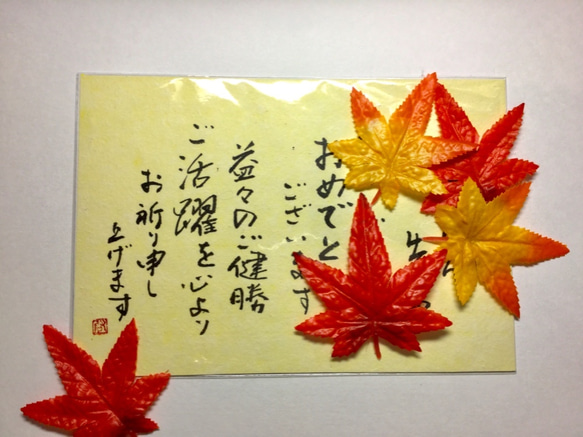 おめでと
ございます
益々のご健勝
ご活躍を心より
お祈り申し
上げます